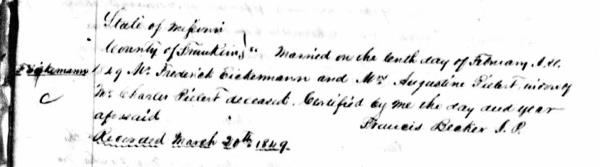 State of Missouri
County of Franklin } ss Married on the tenth day of February A.D.
F Eickemann 1849 Mr. Frederick Eickermann and Mrs Augustine Peilert widow of
C Mr. Charles Peilert deceased. Certified by me the day and year
aforesaid Francis Becker J. P.
Recorded March 20th 1849.